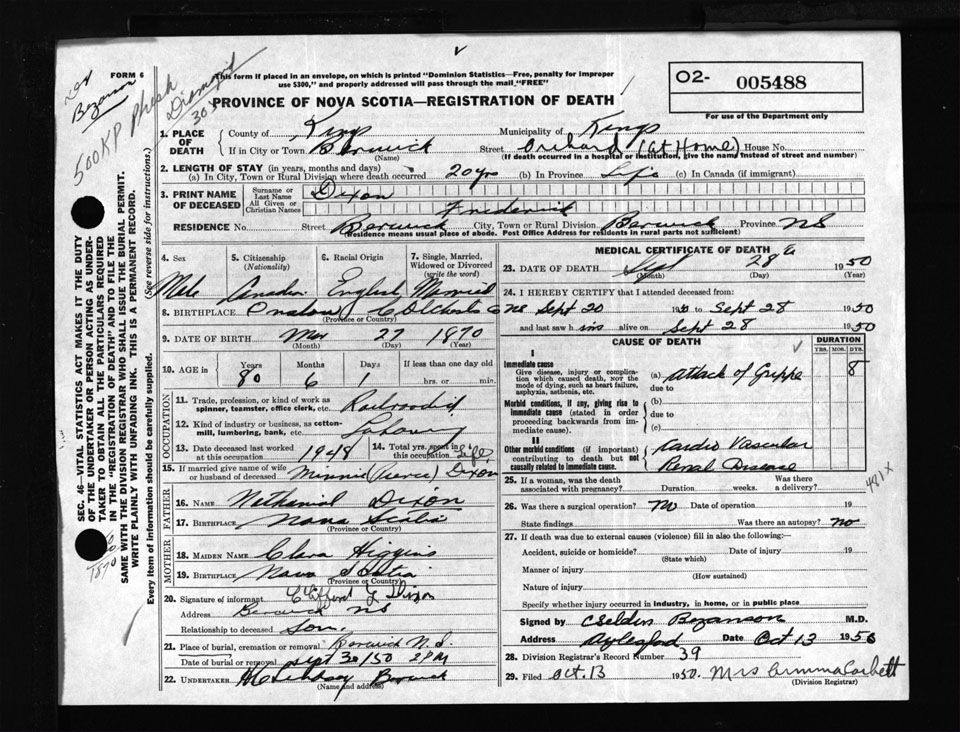 FORM 6
Bezanson
This form if placed in an envelope, on which is printed "Dominion Statistics—Free, penalty for improper
use $300," and properly addressed will pass through the mail "FREE"
O2- 005488
PROVINCE OF NOVA SCOTIA—REGISTRATION OF DEATH
For use of the Department only
1. PLACE OF DEATH County of Kings Municipality of Kings
If in City or Town Berwick Street Orchard (at Home) House No.
(Name) (If death occurred in a hospital or institution, give the name instead of street and number)
2. LENGTH OF STAY (in years, months and days)
(a) In City, Town or Rural Division where death occurred 20 yrs (b) In Province Life (c) In Canada (if immigrant)
3. PRINT NAME OF DECEASED Surname or Last Name Dixon
All Given or Christian Names Frederick
RESIDENCE No. Street Berwick City, Town or Rural Division Berwick Province NS
(Residence means usual place of abode. Post Office Address for residents in rural parts not sufficient)
4. Sex Male
5. Citizenship (Nationality) Canadian
6. Racial Origin English
7. Single, Married, Widowed or Divorced (write the word) Married
8. BIRTHPLACE Onslow Colchester Co NS
(Province or Country)
9. DATE OF BIRTH Mar 27 1870
(Month) (Day) (Year)
10. AGE in Years Months Days If less than one day old
80 6 1 hrs. or min.
OCCUPATION
11. Trade, profession, or kind of work as
spinner, teamster, office clerk, etc.
12. Kind of industry or business, as cotton-
mill, lumbering, bank, etc. Labourer
13. Date deceased last worked at this occupation 1948
14. Total yrs. spent in this occupation Life
15. If married give name of wife
or husband of deceased Minnie (Pierce) Dixon
FATHER
16. Name Nathaniel Dixon
17. Birthplace Nova Scotia
(Province or Country)
MOTHER
18. Maiden Name Clara Higgins
19. Birthplace Nova Scotia
(Province or Country)
20. Signature of informant Clifford L Dixon
Address Berwick NS
Relationship to deceased Son
21. Place of burial, cremation or removal Berwick N.S.
Date of burial or removal Sept 30/50 2 PM
22. UNDERTAKER Lindsay Berwick
(Name and address)
MEDICAL CERTIFICATE OF DEATH
23. DATE OF DEATH Sept 28 1950
(Month) (Day) (Year)
24. I HEREBY CERTIFY that I attended deceased from:
Sept 20 1950 to Sept 28 1950
and last saw him alive on Sept 28 1950
CAUSE OF DEATH DURATION
YRS. MOS. DYS.
I
Immediate cause
Give disease, injury or compli-
cation which caused death, NOT the
mode of dying, such as heart failure,
asphyxia, asthenia, etc.
(a) Attack of Grippe 8
due to
Morbid conditions, if any, giving rise to
immediate cause (stated in order
proceeding backwards from im-
mediate cause).
(b)
due to
(c)
II
Other morbid conditions (if important)
contributing to death but not
causally related to immediate cause.
Cardio Vascular
Renal Disease
25. If a woman, was the death Was there
associated with pregnancy? Duration weeks. a delivery?
26. Was there a surgical operation? No Date of operation 19
State findings Was there an autopsy? no
27. If death was due to external causes (violence) fill in also the following:—
Accident, suicide or homicide? Date of injury 19
(State which)
Manner of injury
(How sustained)
Nature of injury
Specify whether injury occurred in industry, in home, or in public place
Signed by Bezanson M.D.
Address Aylesford Date Oct 13 1950
28. Division Registrar's Record Number 39
29. Filed Oct. 13 1950. Mrs Emma Corbett
(Division Registrar)
SEC. 46—VITAL STATISTICS ACT MAKES IT THE DUTY
OF THE UNDERTAKER OR PERSON ACTING AS UNDER-
TAKER TO OBTAIN ALL THE PARTICULARS REQUIRED
IN THE "REGISTRATION OF DEATH" AND TO FILE THE
SAME WITH THE DIVISION REGISTRAR WHO SHALL ISSUE THE BURIAL PERMIT.
WRITE PLAINLY WITH UNFADING INK. THIS IS A PERMANENT RECORD.
Every item of information should be carefully supplied. (See reverse side for instructions.)
1870
481X